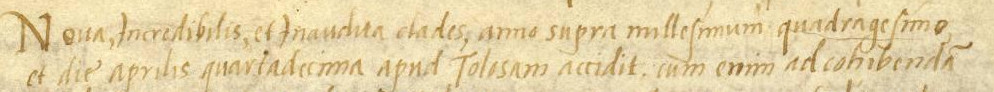 Noua, Incredibilis, et Inaudita clades, anno supra millesimum quadragesimo,
et die aprilis quartadecima apud Tolosam accidit. cum enim ad cohibendā